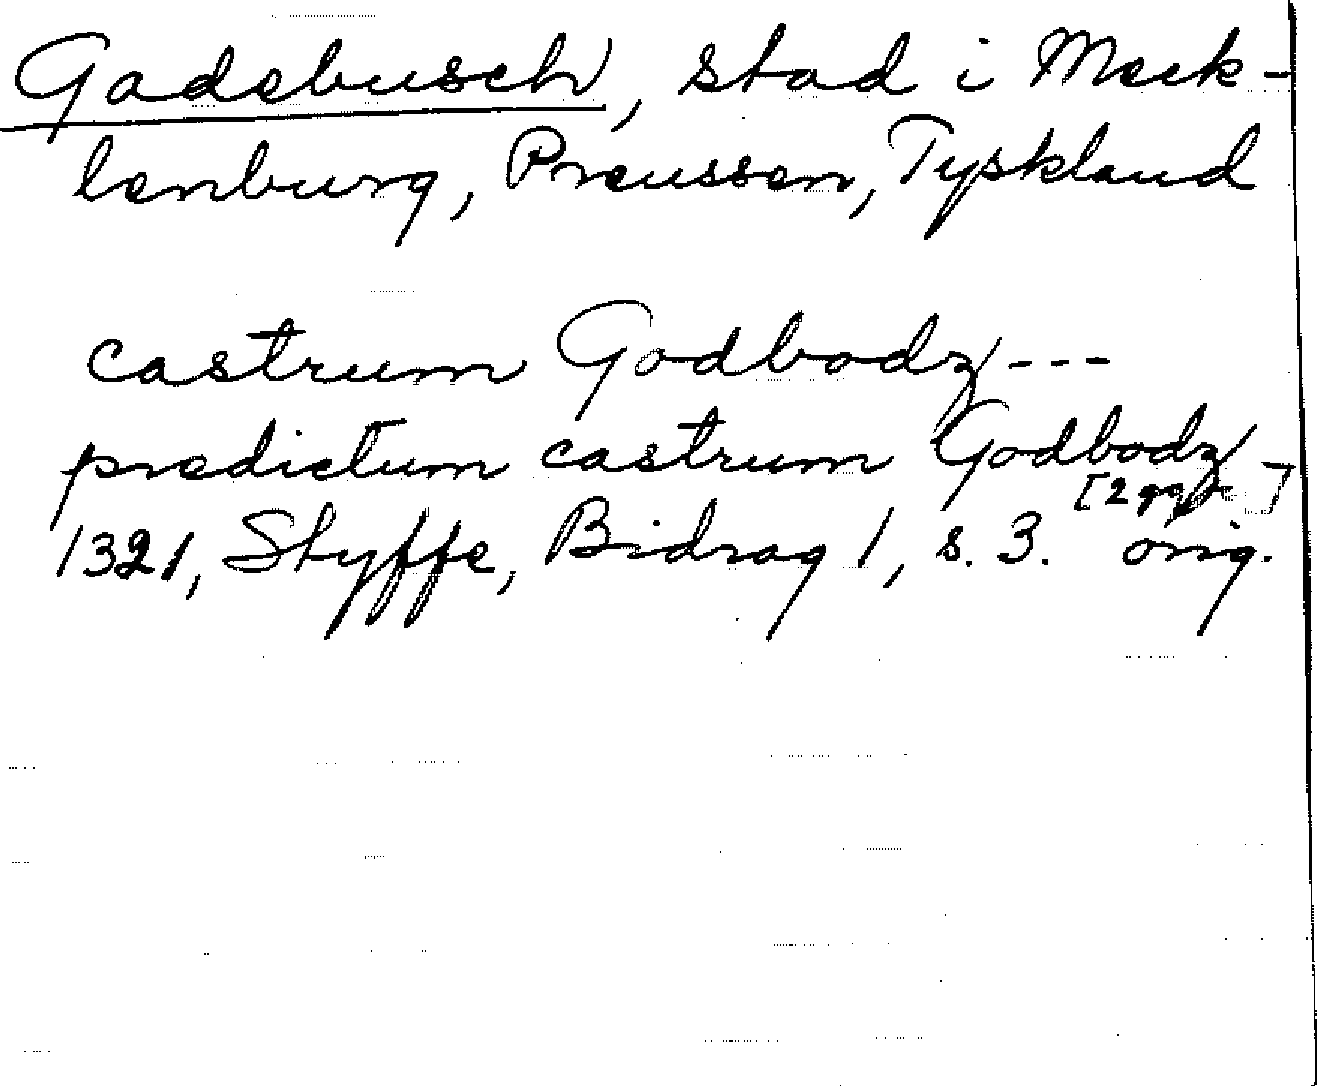 Gadebusch, stad i Meck-
lenburg, Preussen, Tyskland
castrum Godbodz ---
predictum castrum Godbodz
[2 ggr]
1321, Styffe, Bidrag 1, s. 3. orig.